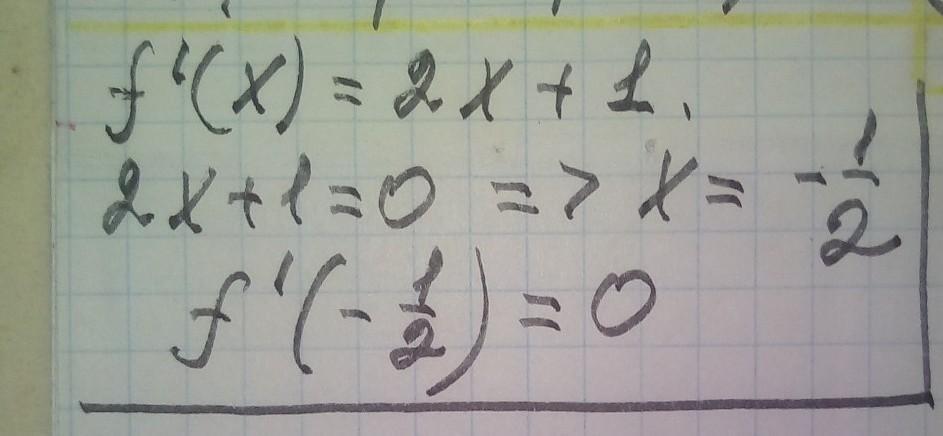 f'(x) = 2x + 1.
2x+1=0 => x = -1/2
f'(-1/2) = 0